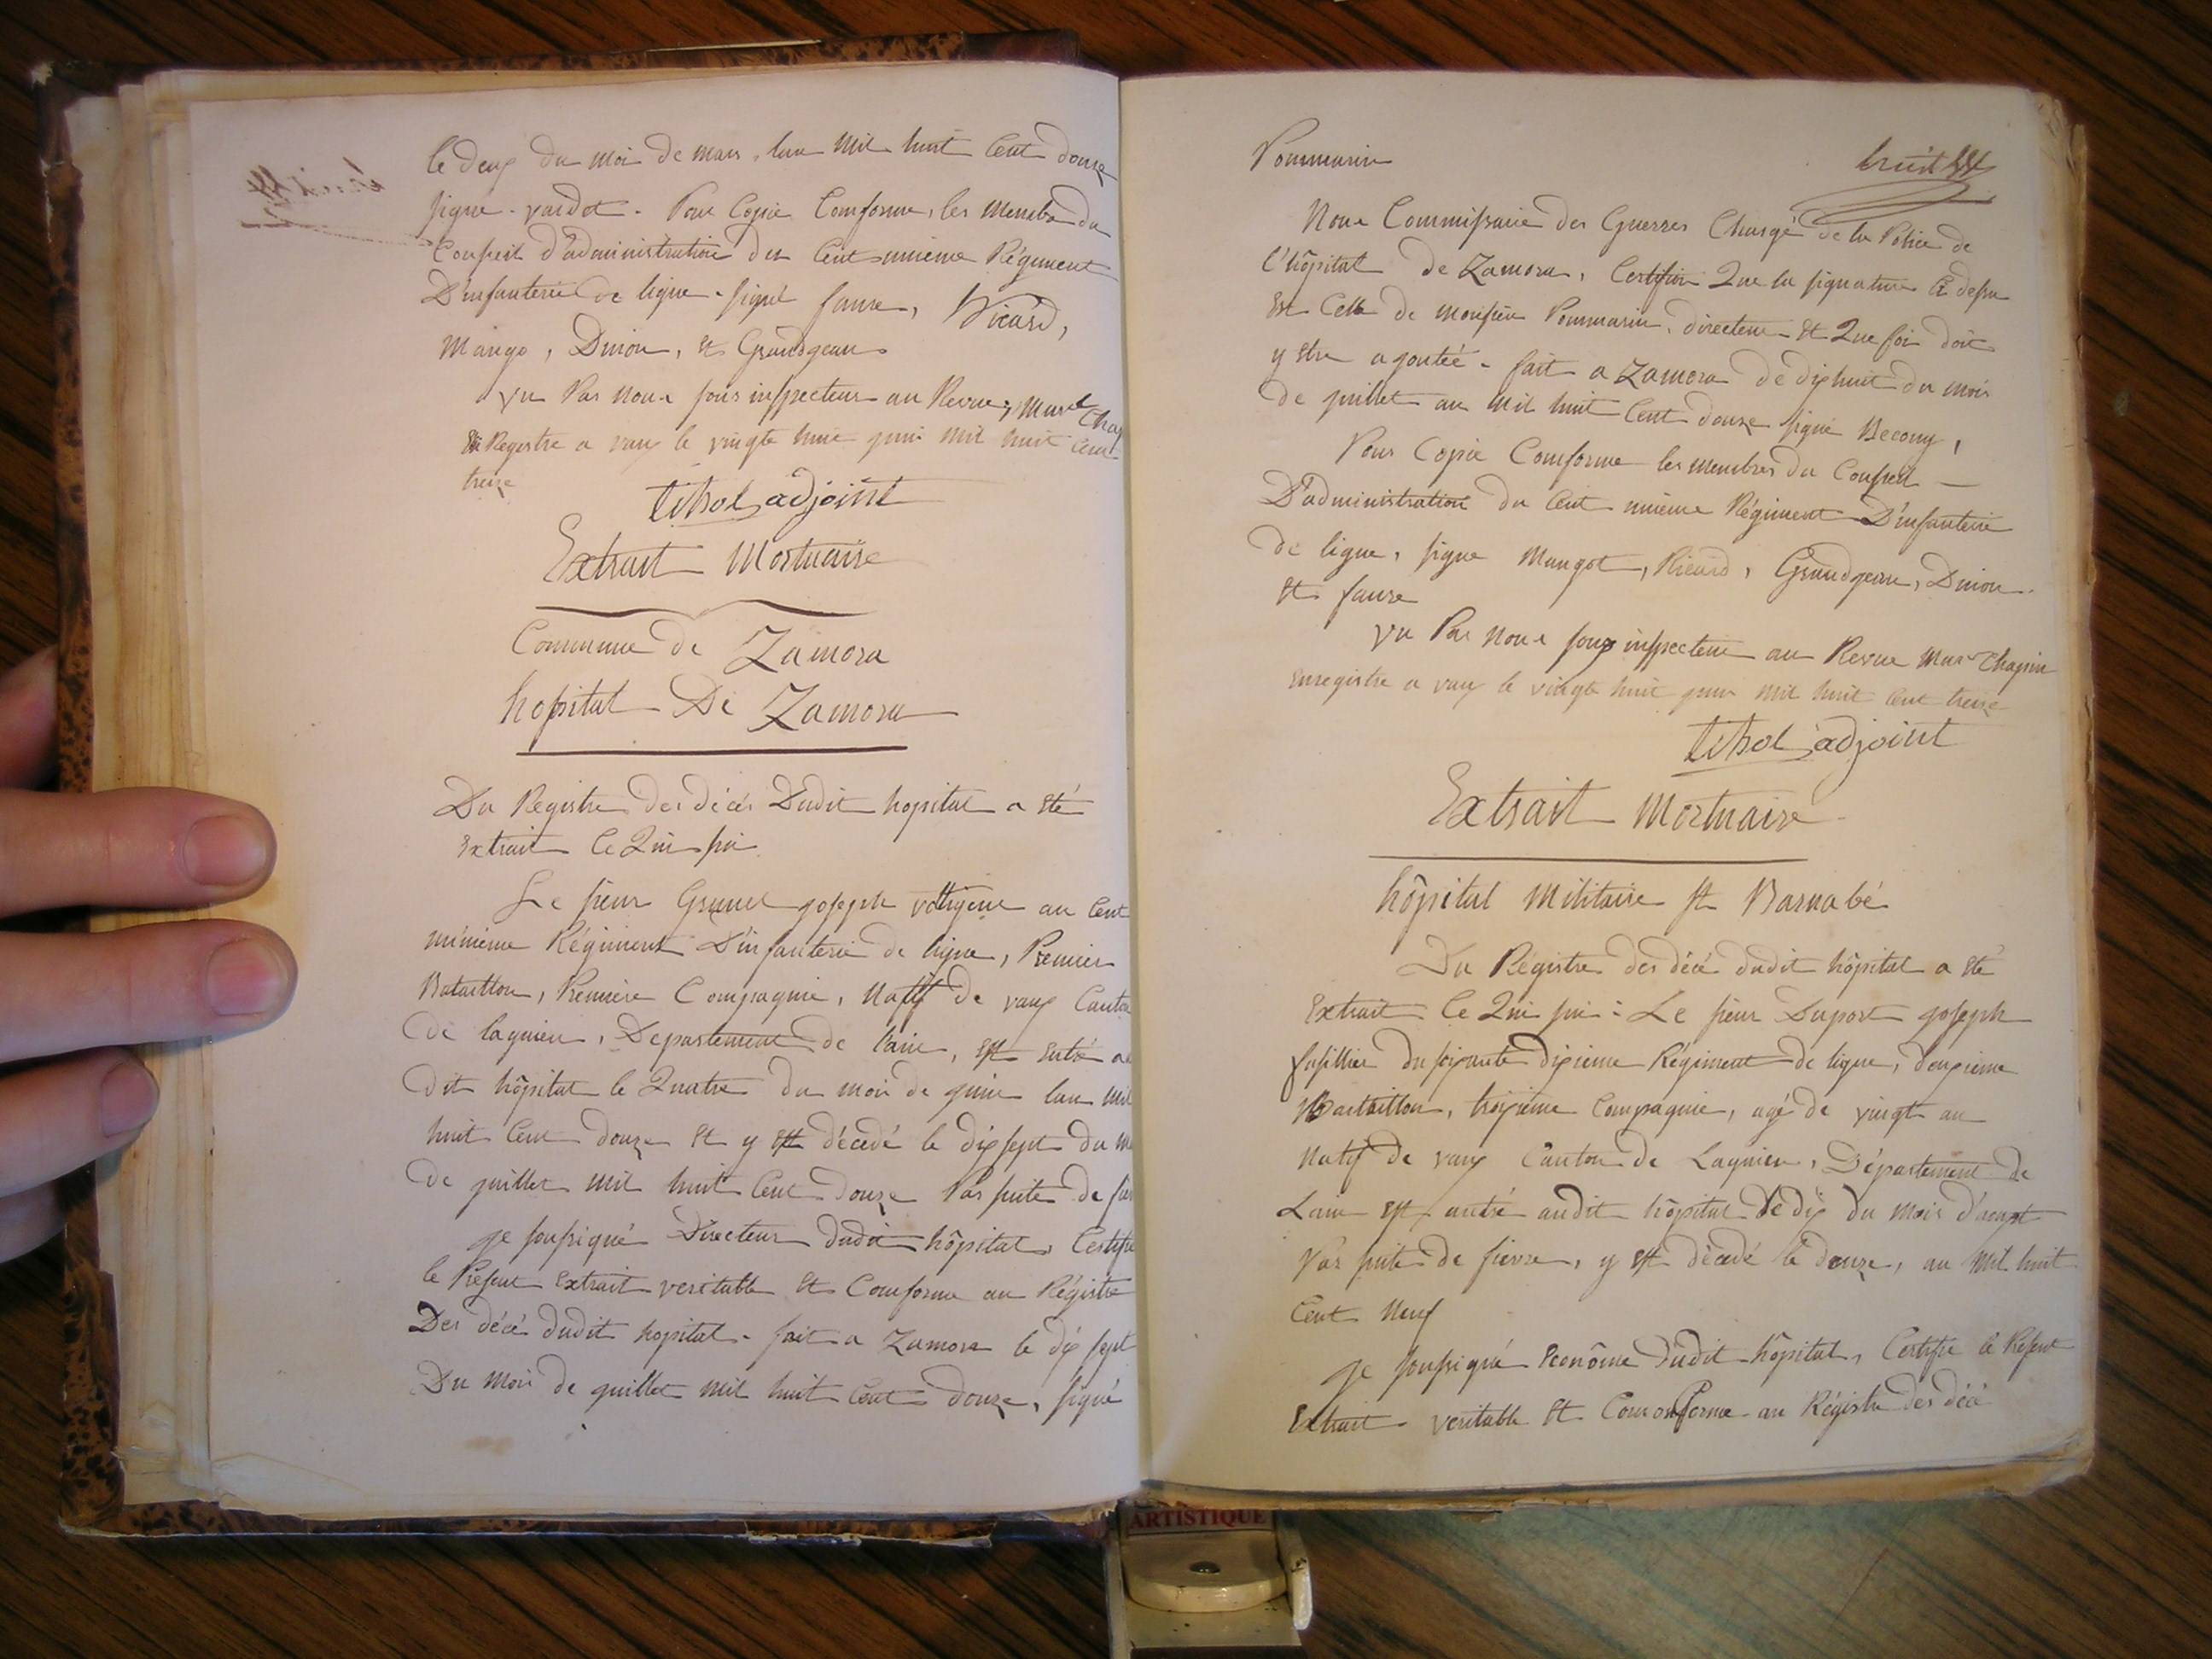 le deux du moi de mars, lan mil huit Cent douze
signe. vardot. Pour Copie Comforme, les membre du
Conseil d'administration du Cent unieme Régiment
D'infanterie de ligne. signé faure, Ricard,
Mango, Dinon, et Grandgean
vu Par nous sous inspecteur au Revue, Marel Chap
En Registre a vaux le vingte huit juin mil huit Cent
treize
tihol adjoint
Extrait Mortuaire
Commune de Zamora
hopital De Zamora
Du Registre des décés Dudit hopital a été
Extrait Ce Qui suit
Le sieur Grumel joseph voltigeur au Cent
unieme Régiment D'infanterie de ligne, Premier
Bataillon, Premiere Compagnie, Natif de vaux Canton
de lagnieu, Departement de l'ain, est entré au
dit hôpital le Quatre du moi de juin lan mil
huit Cent douze Et y est décedé le dix sept du m
de juillet mil huit Cent douze Par suite de fiev
je soussigné Directeur dudit hôpital, Certifie
le Présent Extrait veritable Et Comforme au Régistre
Des décé dudit hopital. fait a Zamora le dix sept
Du moi de juillet mil huit Cent douze, signé
Pommarin
huit
Nous Commissaire des Guerres Chargé de la Police de
l'hôpital de Zamora, Certifion Que la signature Ci dessu
Est Celle de monsieur Pommarin, directeur Et Que foi doit
y Etre ajoutée. fait a Zamora de dixhuit du mois
de juillet an mil huit Cent douze signé Becouy,
Pour Copie Comforme les membres du Conseil
D'administration du Cent unieme Régiment D'infanterie
de ligne, signe Mangot, Ricard, Grandgean, Dinon
Et faure
vu Par nous sous inspecteur au Revue Marel Chapuis
Enregistre a vaux le vingte huit juin mil huit Cent treize
tihol adjoint
Extrait Mortuaire
hôpital Militaire St Barnabé
Du Régistre des décé dudit hôpital a Eté
Extrait Ce Qui suit : Le sieur Duport joseph
fusillier du soixante dixieme Régiment de ligne, deuxieme
Bartaillon, troisieme Compagnie, agé de vingt an
Natif de vaux Canton de Lagnieu, Département de
Lain est antré audit hôpital de dix du mois d'aoust
Par suite de fievre, y est décedé le douze, an mil huit
Cent Neuf
je soussigné Econôme dudit hôpital, Certifie le Présent
Extrait veritable Et Comonforme au Régistre des décé
ARTISTIQUE